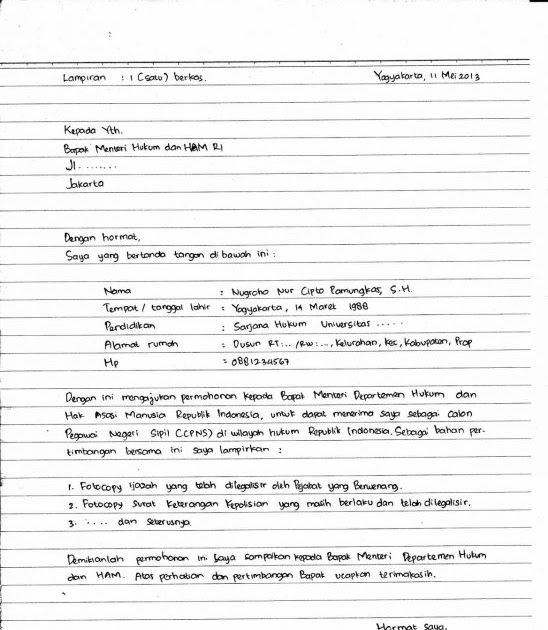 Lampiran : 1 (satu) berkas. Yogyakarta, 11 Mei 2013
Kepada Yth.
Bapak Menteri Hukum dan HAM RI
Jl. .......
Jakarta
Dengan hormat,
Saya yang bertanda tangan di bawah ini :
Nama : Nugroho Nur Cipto Pamungkas, S.H.
Tempat / tanggal lahir : Yogyakarta, 14 Maret 1988
Pendidikan : Sarjana Hukum Universitas .....
Alamat rumah : Dusun RT:.. /RW:..., Kelurahan, Kec, Kabupaten, Prop
Hp : 0881234567
Dengan ini mengajukan permohonan kepada Bapak Menteri Departemen Hukum dan
Hak Asasi Manusia Republik Indonesia, untuk dapat menerima saya sebagai calon
Pegawai Negeri Sipil (CPNS) di wilayah hukum Republik Indonesia. Sebagai bahan per-
timbangan bersama ini saya lampirkan :
1. Fotocopy ijazah yang telah dilegalisir oleh Pejabat yang Berwenang.
2. Fotocopy Surat Keterangan Kepolisian yang masih berlaku dan telah dilegalisir.
3. ..... dan seterusnya
Demikianlah permohonan ini saya sampaikan kepada Bapak Menteri Departemen Hukum
dan HAM. Atas perhatian dan pertimbangan Bapak ucapkan terimakasih.
Hormat saya,